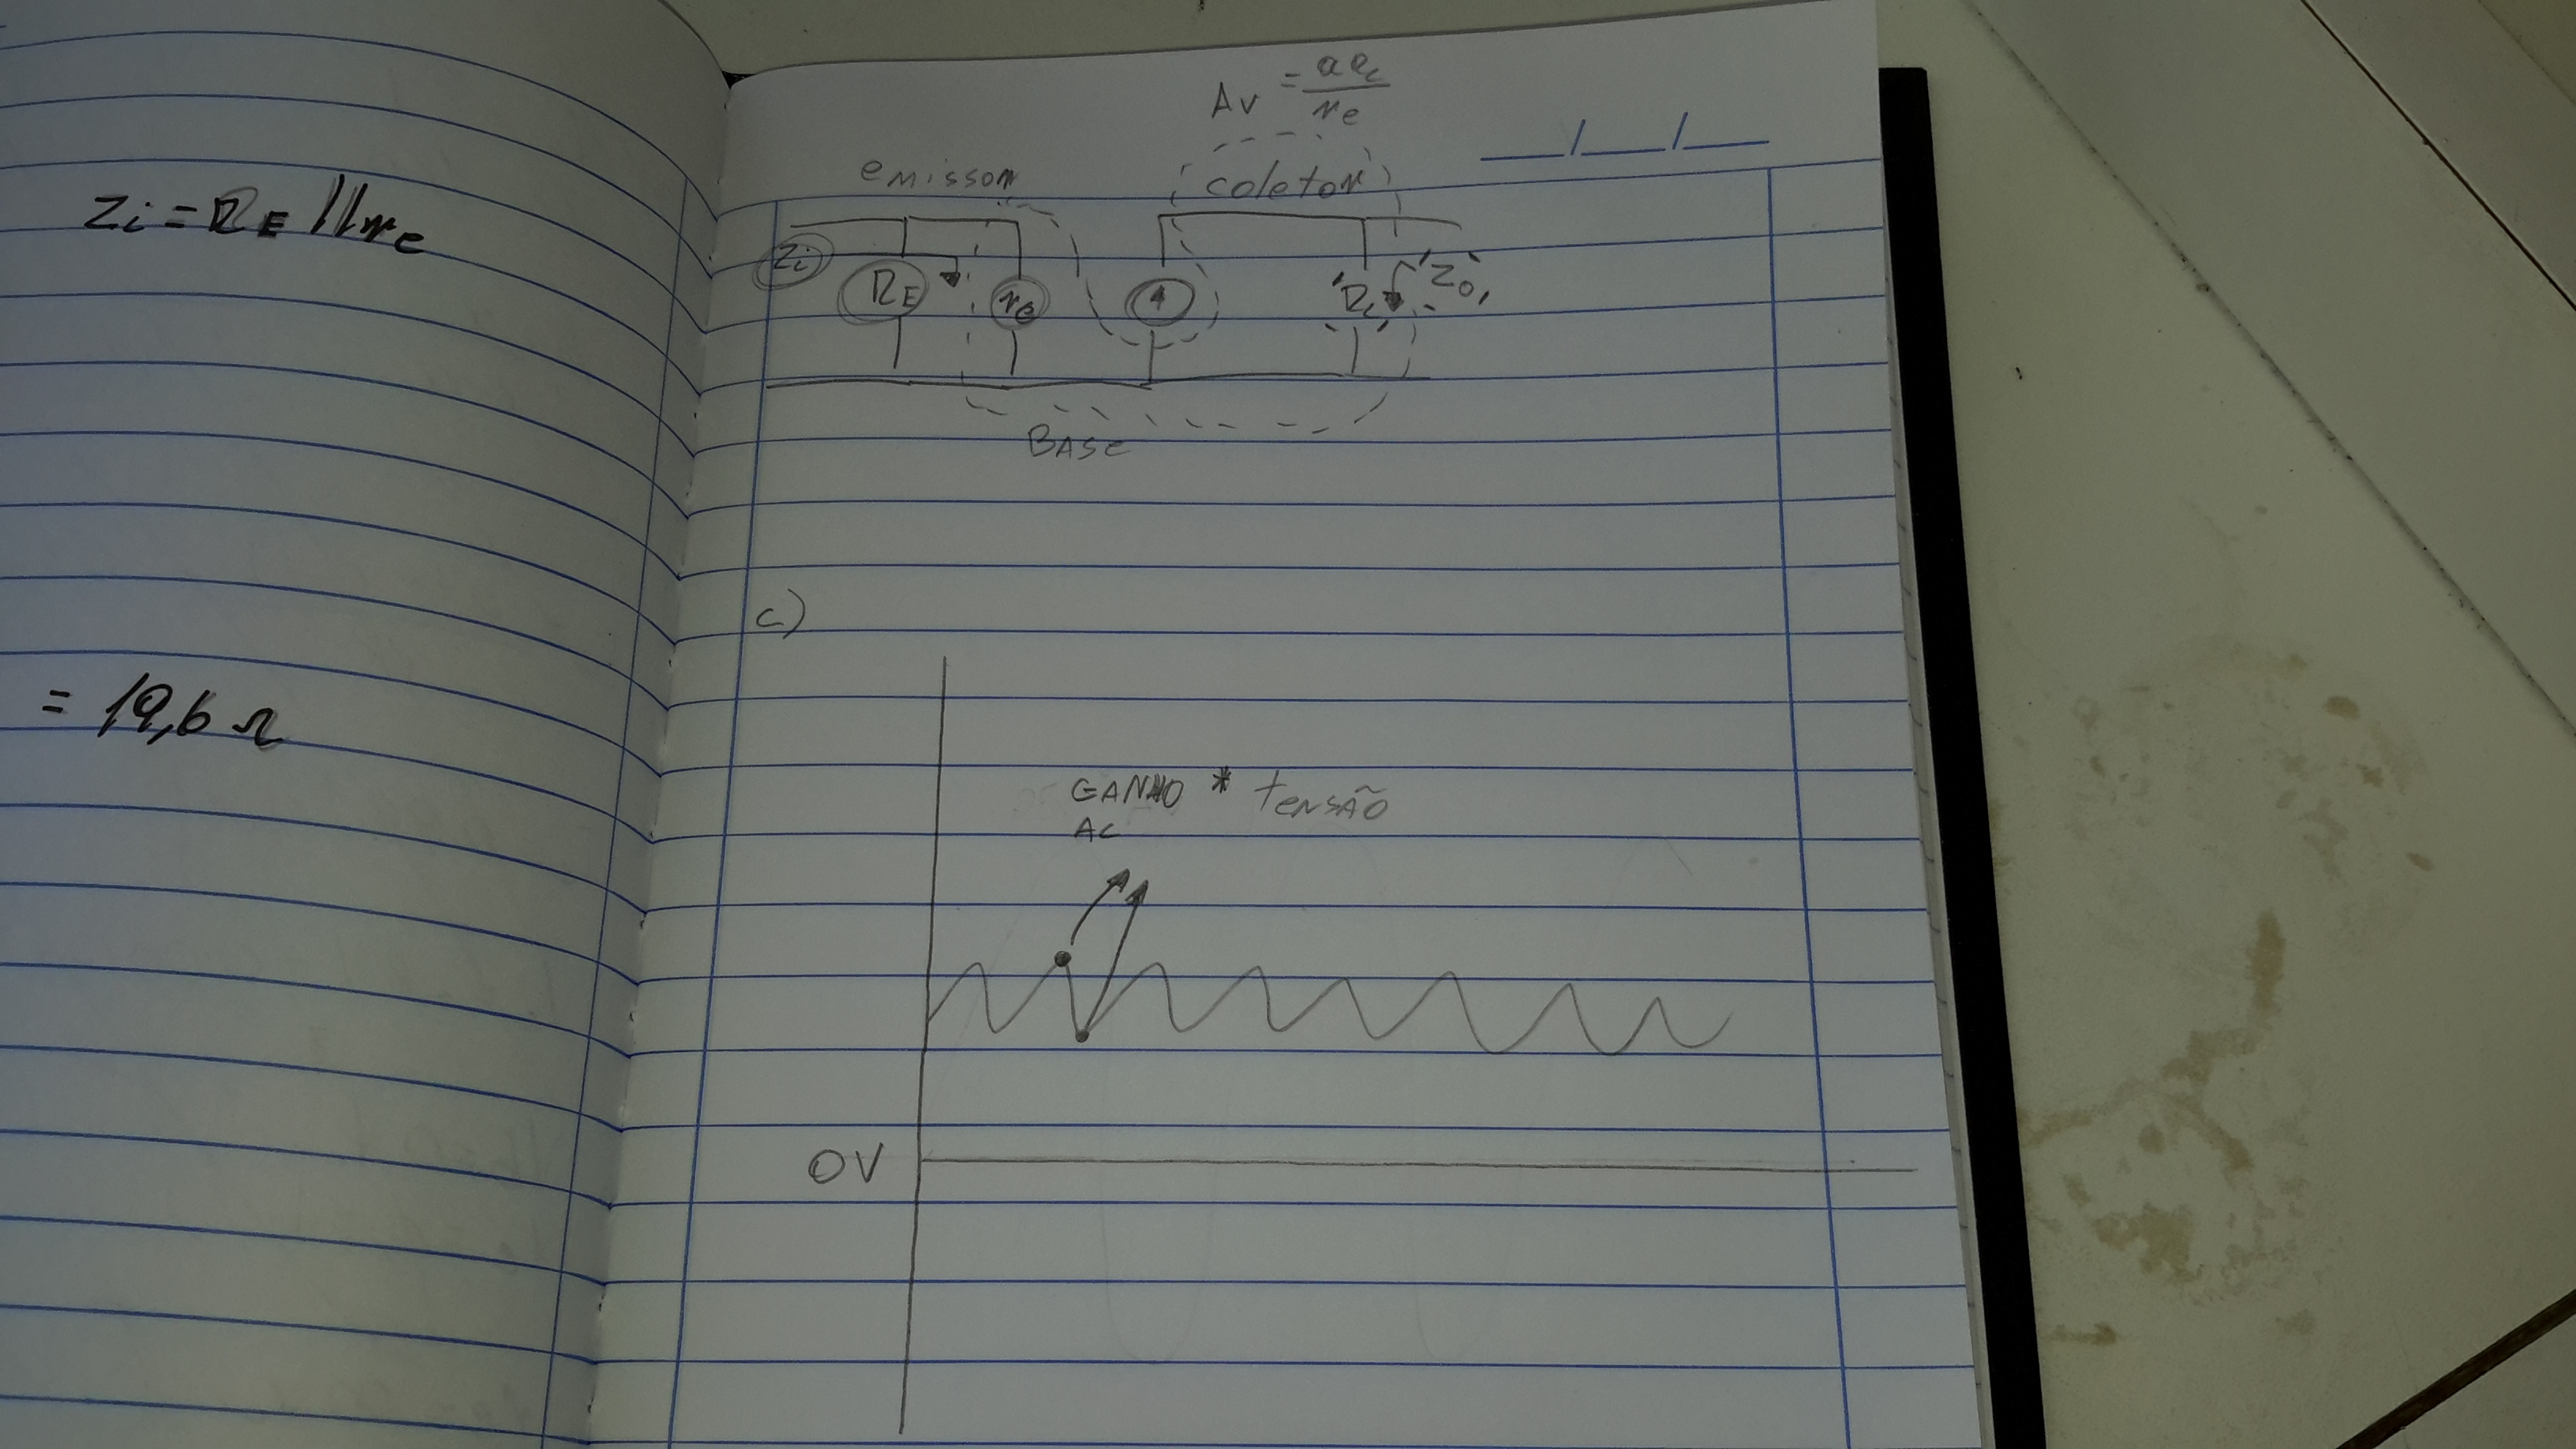 Zi = RE // re
= 19,6 Ω
Av = αRc / re
emissor
coletor
Zi
RE
re
Rc
Zo
BASE
c)
GANHO * tensão
AC
0V